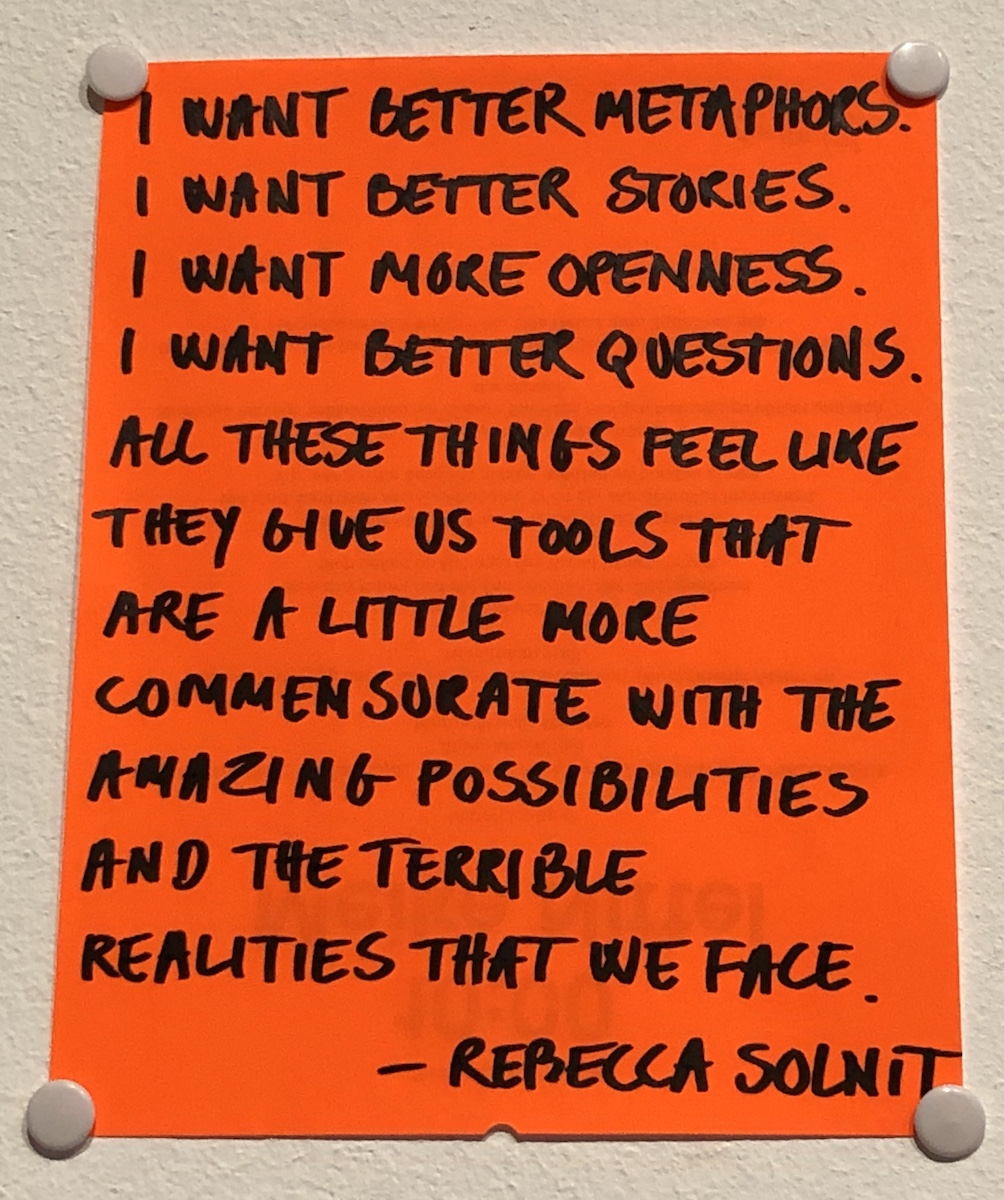 I WANT BETTER METAPHORS.
I WANT BETTER STORIES.
I WANT MORE OPENNESS.
I WANT BETTER QUESTIONS.
ALL THESE THINGS FEEL LIKE
THEY GIVE US TOOLS THAT
ARE A LITTLE MORE
COMMENSURATE WITH THE
AMAZING POSSIBILITIES
AND THE TERRIBLE
REALITIES THAT WE FACE.
— REBECCA SOLNIT